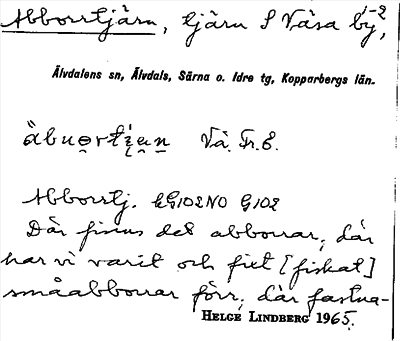 Abborrtjärn, tjärn S Våsa by, 1-2
Älvdalens sn, Älvdals, Särna o. Idre tg, Kopparbergs län.
Vå. Fr. E.
Abborrtj. EG102NO G102
Där finns det abborrar, där
har vi varit och fixt [fiskat]
småabborrar förr, där fastna-
HELGE LINDBERG 1965.